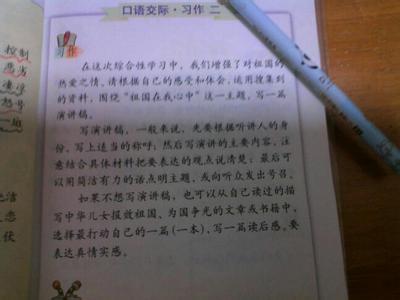 口语交际·习作 二
习作
在这次综合性学习中，我们增强了对祖国的
热爱之情，请根据自己的感受和体会，运用搜集到
的资料，围绕“祖国在我心中”这一主题，写一篇
演讲稿。
写演讲稿，一般来说，先要根据听讲人的身
份，写上适当的称呼，然后写演讲的主要内容，注
意结合具体材料把要表达的观点说清楚；最后可
以用简洁有力的话点明主题，或向听众发出号召。
如果不想写演讲稿，也可以从自己读过的描
写中华儿女报效祖国、为国争光的文章或书籍中，
选择最打动自己的一篇(一本)，写一篇读后感，要
表达真情实感。
控制
恶劣